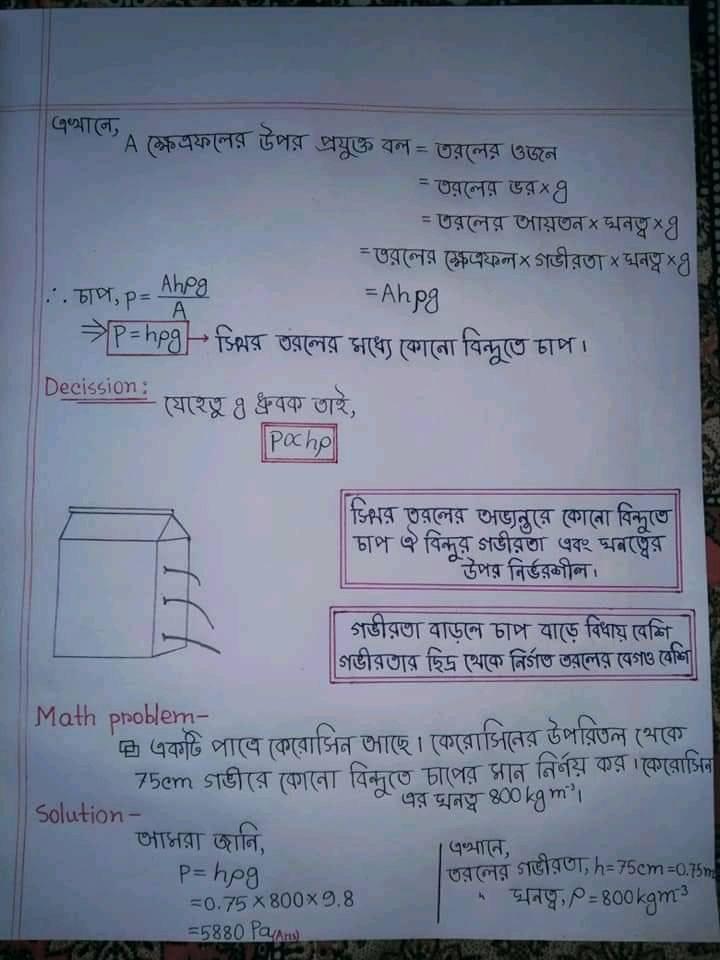 এখানে,
A ক্ষেত্রফলের উপর প্রযুক্ত বল = তরলের ওজন
= তরলের ভর × g
= তরলের আয়তন × ঘনত্ব × g
= তরলের ক্ষেত্রফল × গভীরতা × ঘনত্ব × g
= Ahρg
∴ চাপ, P = Ahρg / A
⇒ P = hρg → স্থির তরলের মধ্যে কোনো বিন্দুতে চাপ।
Decission:
যেহেতু g ধ্রুবক তাই,
P∝hρ
স্থির তরলের অভ্যন্তরে কোনো বিন্দুতে
চাপ ঐ বিন্দুর গভীরতা এবং ঘনত্বের
উপর নির্ভরশীল।
গভীরতা বাড়লে চাপ বাড়ে বিধায় বেশি
গভীরতার ছিদ্র থেকে নির্গত তরলের বেগও বেশি
Math problem-
একটি পাত্রে কেরোসিন আছে। কেরোসিনের উপরিতল থেকে
75cm গভীরে কোনো বিন্দুতে চাপের মান নির্নয় কর। কেরোসিন
এর ঘনত্ব 800 kg m⁻³।
Solution-
আমরা জানি,
P = hρg
= 0.75 × 800 × 9.8
= 5880 Pa (Ans)
এখানে,
তরলের গভীরতা, h = 75cm = 0.75m
" ঘনত্ব, ρ = 800 kgm⁻³